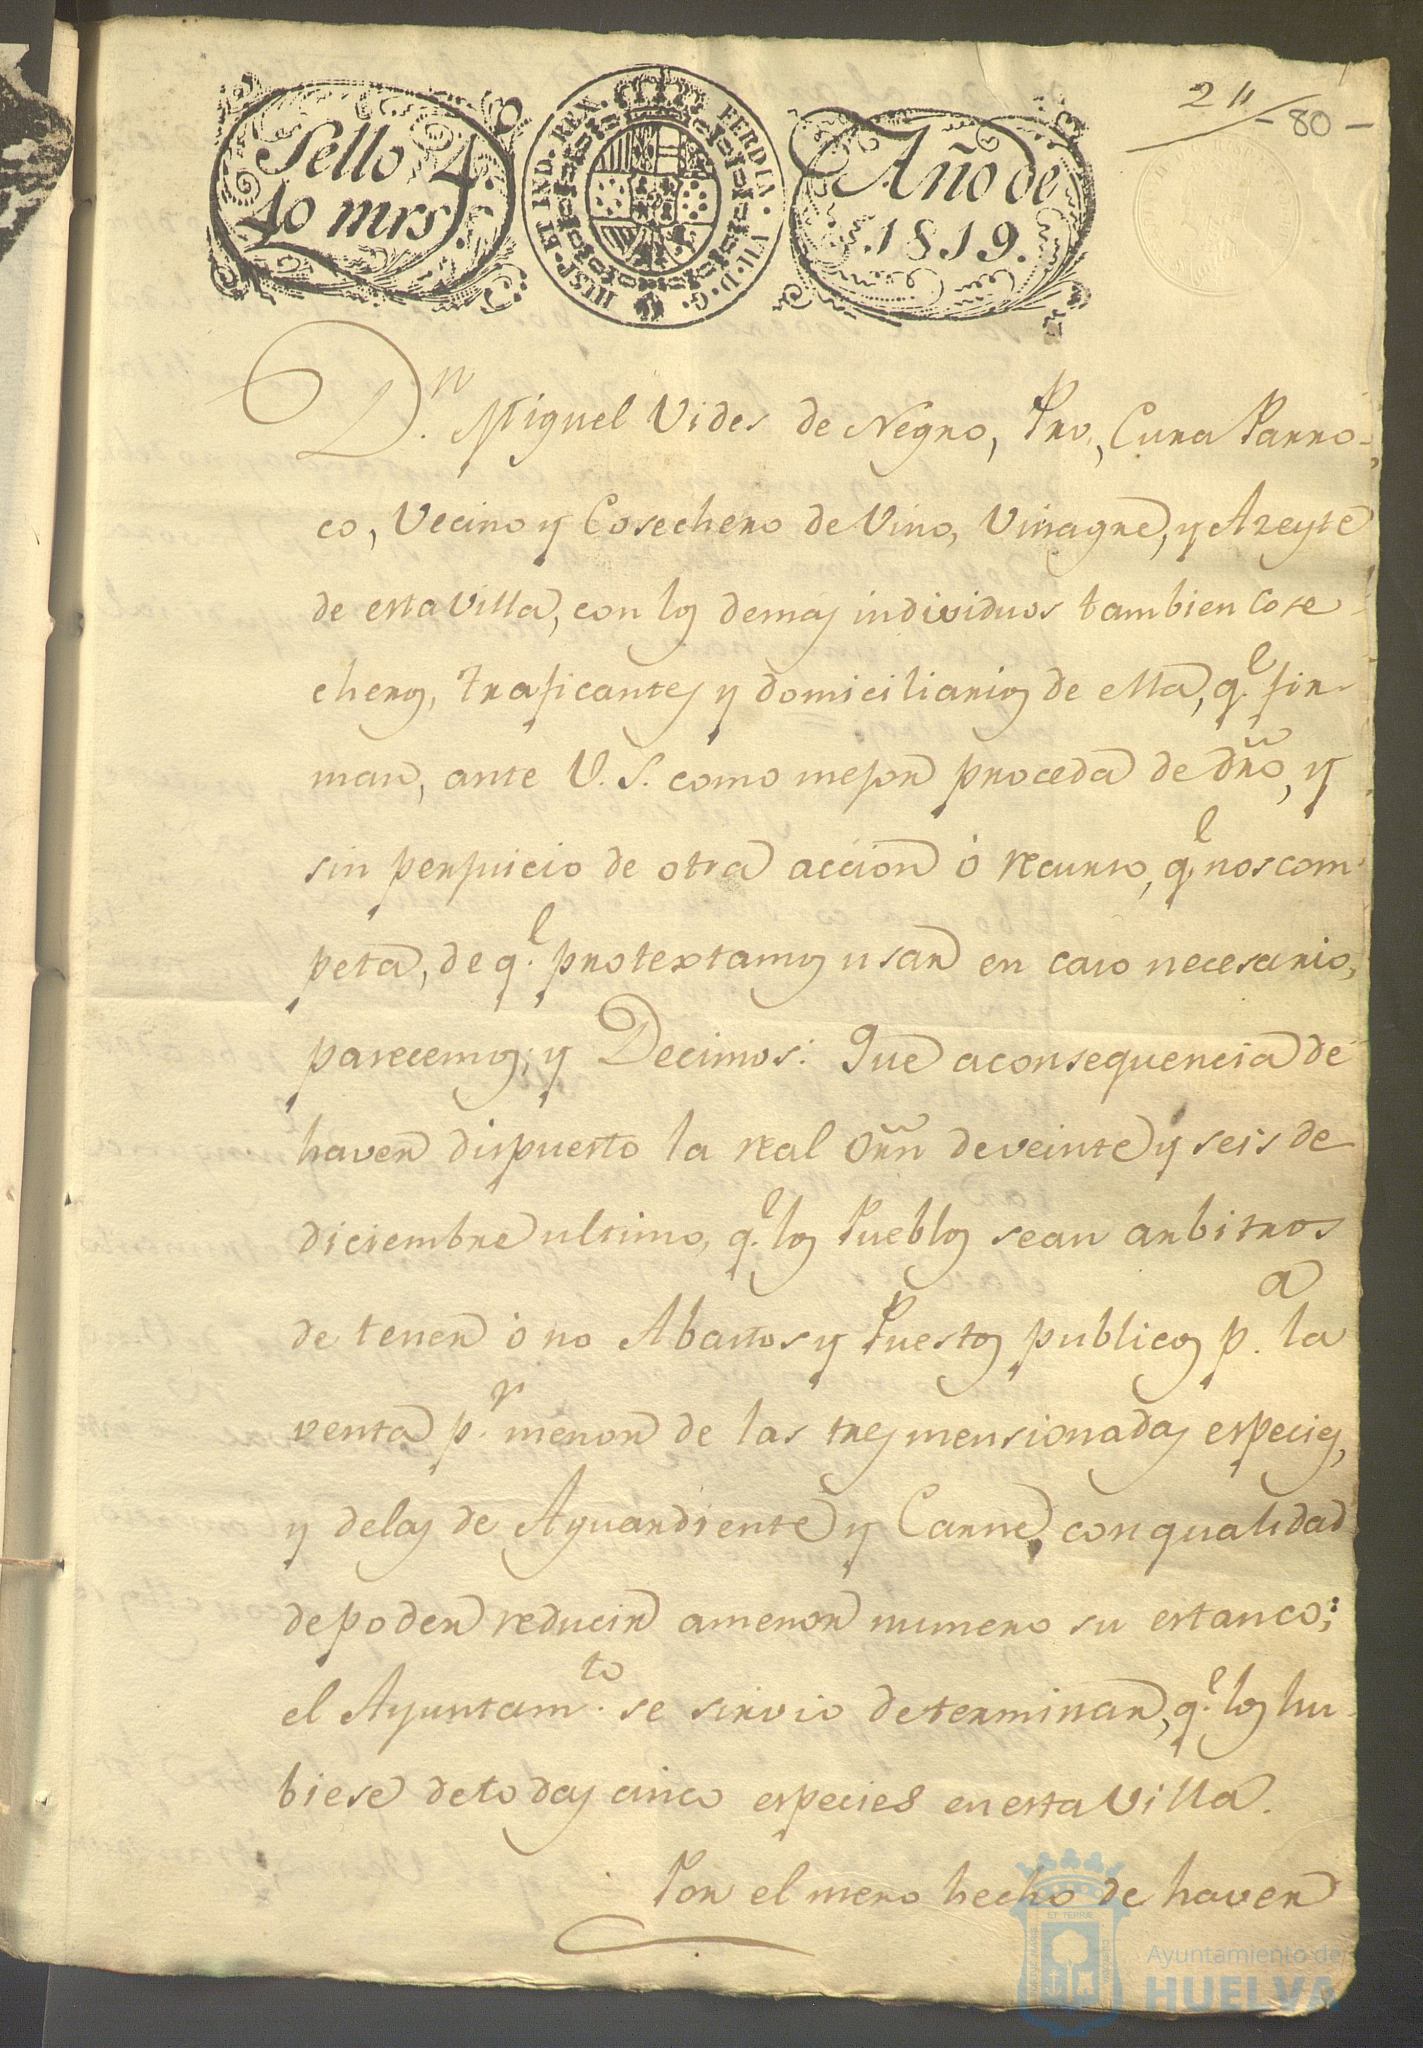 2 11
- 80 -
Sello 4.
40 mrs.
HISP. ET IND. REX. FERD IN. VII. D. G.
Año de
1819.
D.n Miguel Vides de Negro, Pro., Cura Parro-
co, Vecino y Cosechero de Vino, Vinagre, y Azeyte
de esta Villa, con los demas individuos tambien Cose-
cheros, traficantes y domiciliarios de ella, q.e fir-
man, ante V. S. como mejor proceda de dro̅, y
sin perjuicio de otra accion ó recurso, q.e nos com-
peta, de q.e protextamos usar en caso necesario,
parecemos, y Decimos: Que a consequencia de
haver dispuesto la real Orn̅ de veinte y seis de
diciembre ultimo, q.e los Pueblos sean arbitros
de tener ó no Abastos y Puestos publicos p.a la
venta p.r menor de las tres mensionadas especies,
y de las de Aguardiente y Carne, con qualidad
de poder reducir a menor numero su estanco;
el Ayuntam.to se sirvio determinar, q.e los hu-
biese de todas cinco especies en esta Villa.
Por el mero hecho de haver
Ayuntamiento de
HUELVA